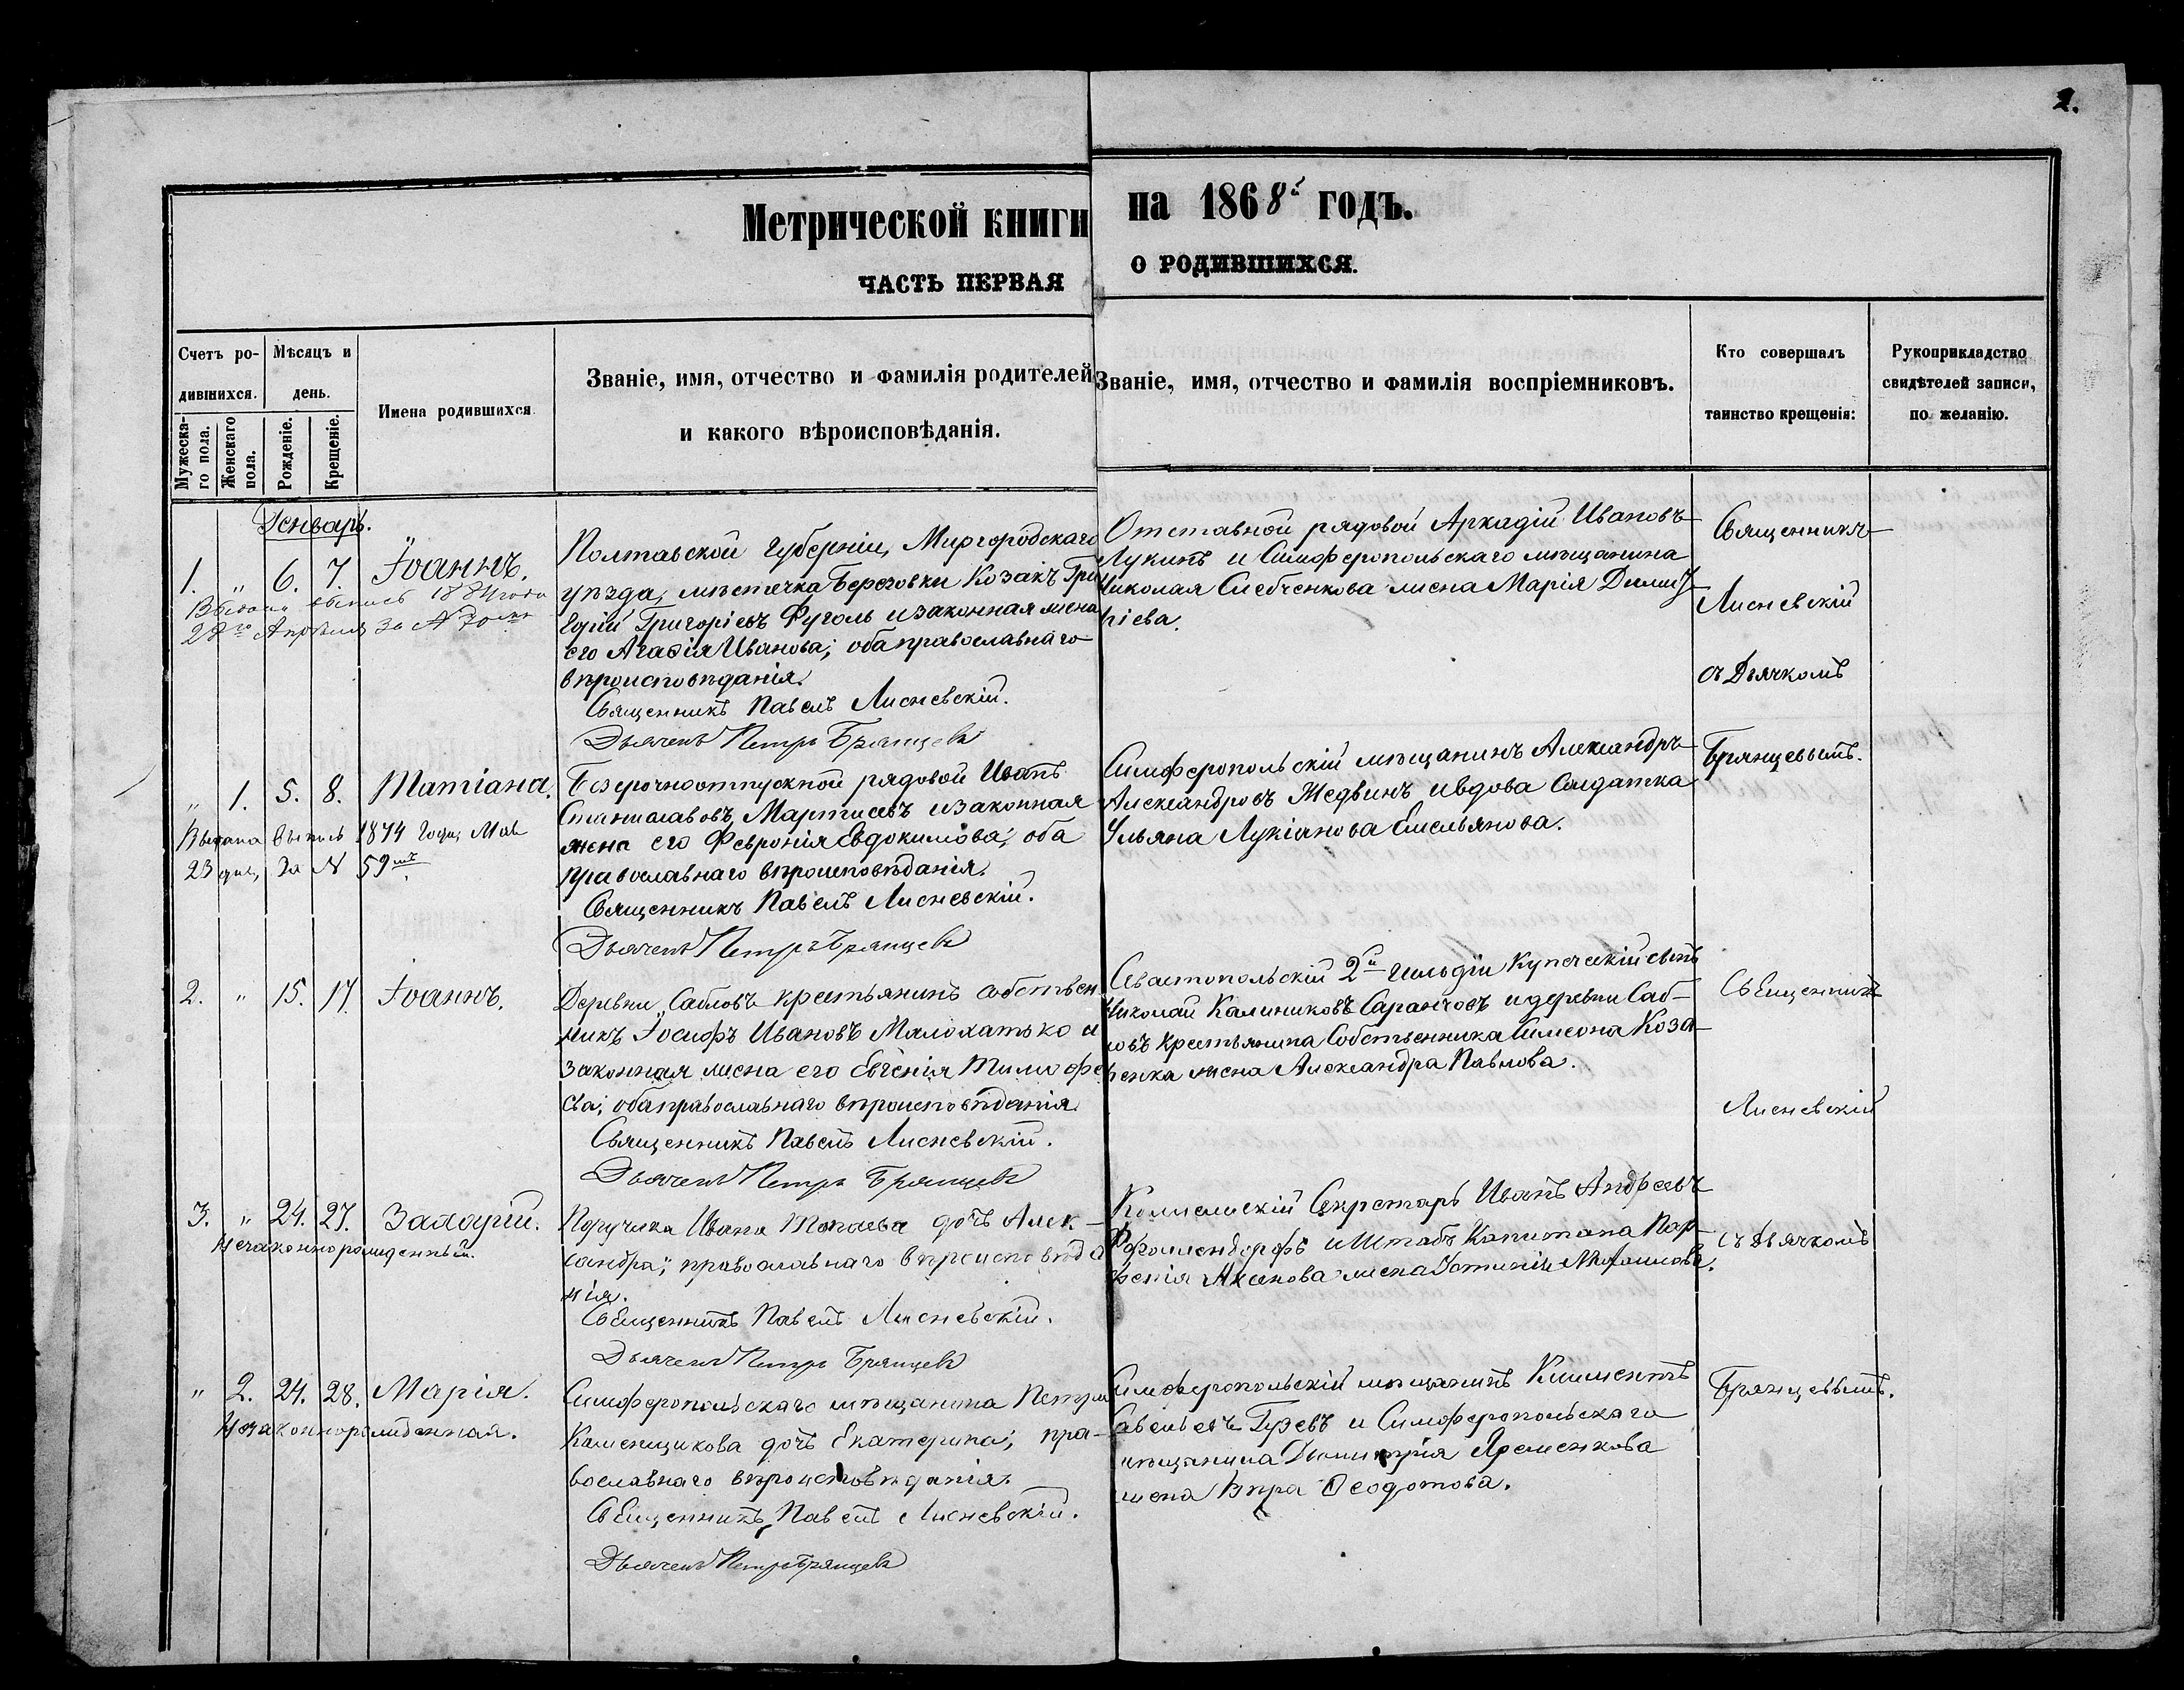 2.
Метрической книги на 1868й годъ.
ЧАСТЬ ПЕРВАЯ О РОДИВШИХСЯ.
Счетъ ро-
дившихся.
Мужеска-
го пола.
Женскаго
пола.
Мѣсяцъ и
день.
Рожденіе.
Крещеніе.
Имена родившихся.
Званіе, имя, отчество и фамилія родителей,
и какого вѣроисповѣданія.
Званіе, имя, отчество и фамилія воспріемниковъ.
Кто совершалъ
таинство крещенія:
Рукоприкладство
свидѣтелей записи,
по желанію.
Генварь.
1. " 6. 7. Іоаннъ.
Выдана выпись 1884 года
28го Апрѣля за №
Полтавской губерніи, Миргородскаго
уѣзда, мѣстечка Березовки Козакъ Гри
горій Григоріевъ Фуголь и законная жена
его Агаѳія Иванова; оба православнаго
вѣроисповѣданія.
Священникъ Павелъ Лисневскій.
Дьячекъ Петръ Брянцевъ
Отставной рядовой Аркадій Ивановъ
Лукинъ и Симферопольскаго мѣщанина
Николая Слебченкова жена Марія Димит
ріева.
Священникъ
Лисневскій
съ Дьячкомъ
Брянцевымъ.
" 1. 5. 8. Татіана.
Выдана выпись 1874 года, Мая
23 дня, За № 59мъ
Безсрочноотпускной рядовой Иванъ
Станиславовъ Мартисевъ и законная
жена его Февронія Евдокимова; оба
православнаго вѣроисповѣданія.
Священникъ Павелъ Лисневскій.
Дьячекъ Петръ Брянцевъ
Симферопольскій мѣщанинъ Александръ
Александровъ Медвинъ и вдова Солдатка
Ульяна Лукіанова Емельянова.
2. " 15. 17. Іоаннъ.
Деревни Сабловъ крестьянинъ собствен
никъ Іосифъ Ивановъ Малохатько и
законная жена его Евгенія Тимофе
ева; оба православнаго вѣроисповѣданія.
Священникъ Павелъ Лисневскій.
Дьячекъ Петръ Брянцевъ
Севастопольскій 2й гильдіи Купеческій сынъ
Николай Калиниковъ Саранчовъ и деревни Саб-
ловъ крестьянина Собственника Симеона Коза-
ренка жена Александра Павлова.
Священникъ
Лисневскій
съ Дьячкомъ
Брянцевымъ.
3. " 24. 27. Захарій.
Незаконнорожденный.
Поручика Ивана Топаева дочь Алек-
сандра; православнаго вѣроисповѣда
нія.
Священникъ Павелъ Лисневскій.
Дьячекъ Петръ Брянцевъ
Коллежскій Секретарь Иванъ Андреевъ
и Штабъ Капитана Пар-
ѳенія Аксенова жена
" 2. 24. 28. Марія.
Незаконнорожденная.
Симферопольскаго мѣщанина Петра
Каменщикова дочь Екатерина; пра-
вославнаго вѣроисповѣданія.
Священникъ Павелъ Лисневскій.
Дьячекъ Петръ Брянцевъ
Симферопольскій мѣщанинъ Климентъ
Савельевъ Гузевъ и Симферопольскаго
мѣщанина Димитрія Яременкова
жена Вѣра Ѳеодотова.